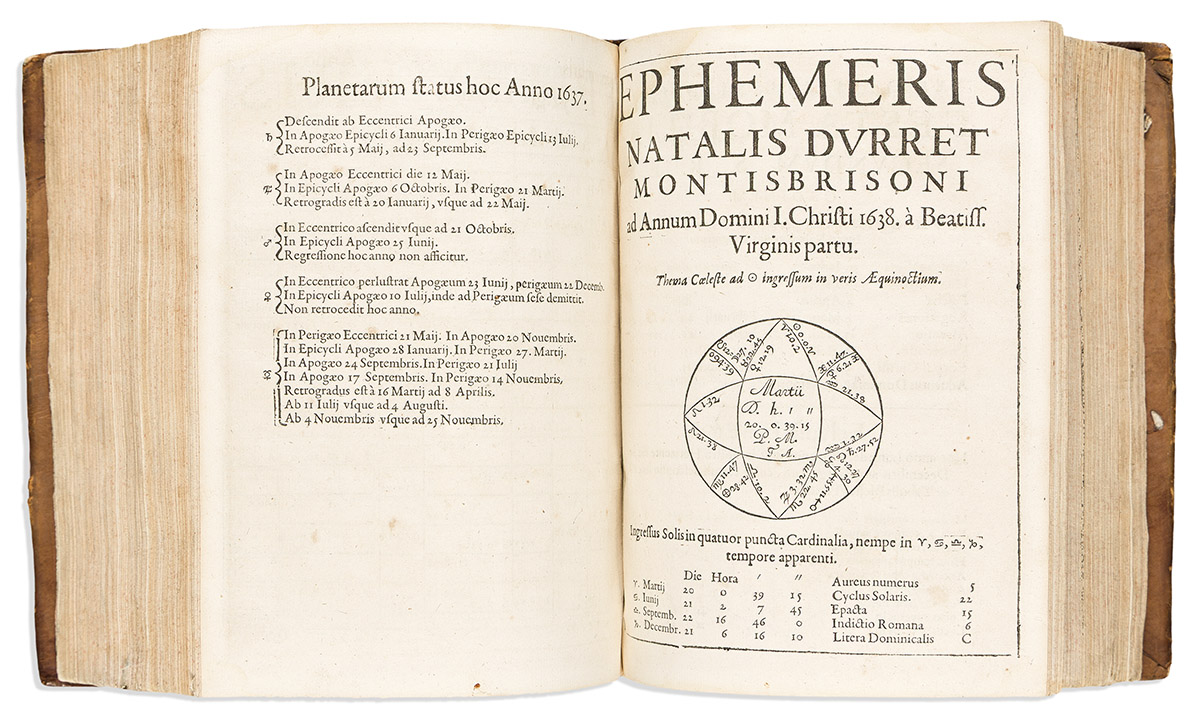 Planetarum ſtatus hoc Anno 1637.
Deſcendit ab Eccentrici Apogæo.
♄ In Apogæo Epicycli 6 Ianuarij. In Perigæo Epicycli 13 Iulij,
Retroceſſit à 5 Maij, ad 23 Septembris.
In Apogæo Eccentrici die 12 Maij.
♃ In Epicycli Apogæo 6 Octobris. In Perigæo 21 Martij.
Retrogradis eſt à 20 Ianuarij, vſque ad 22 Maij.
In Eccentrico aſcendit vſque ad 21 Octobris.
♂ In Epicycli Apogæo 25 Iunij.
Regreſſione hoc anno non afficitur.
In Eccentrico perluſtrat Apogæum 23 Iunij, perigæum 22 Decemb.
♀ In Epicycli Apogæo 10 Iulij, inde ad Perigæum ſeſe demittit.
Non retrocedit hoc anno.
In Perigæo Eccentrici 21 Maij. In Apogæo 20 Nouembris.
In Epicycli Apogæo 28 Ianuarij. In Perigæo 27. Martij.
In Apogæo 24 Septembris. In Perigæo 21 Iulij
☿ In Apogæo 17 Septembris. In Perigæo 14 Nouembris,
Retrogradus eſt à 16 Martij ad 8 Aprilis.
Ab 11 Iulij vſque ad 4 Auguſti.
Ab 4 Nouembris vſque ad 25 Nouembris.
EPHEMERIS
NATALIS DVRRET
MONTISBRISONI
ad Annum Domini I. Chriſti 1638. à Beatiſſ.
Virginis partu.
Thema Cœleſte ad ☉ ingreſſum in veris Æquinoctium.
☉ 0.0
♈ 10.2
♀ 12.19
♌ 1.32
♌ 21.38
Martii
D. h. ′ ″
20. 0. 39. 15
P. M.
♍ 11.47
Ingreſſus Solis in quatuor puncta Cardinalia, nempe in ♈, ♋, ♎, ♑,
tempore apparenti.
Die Hora ′ ″
♈. Martij 20 0 39 15 Aureus numerus 5
♋. Iunij 21 2 7 45 Cyclus Solaris. 22
♎. Septemb. 22 16 46 0 Epacta 15
♑. Decembr. 21 6 16 10 Indictio Romana 6
Litera Dominicalis C